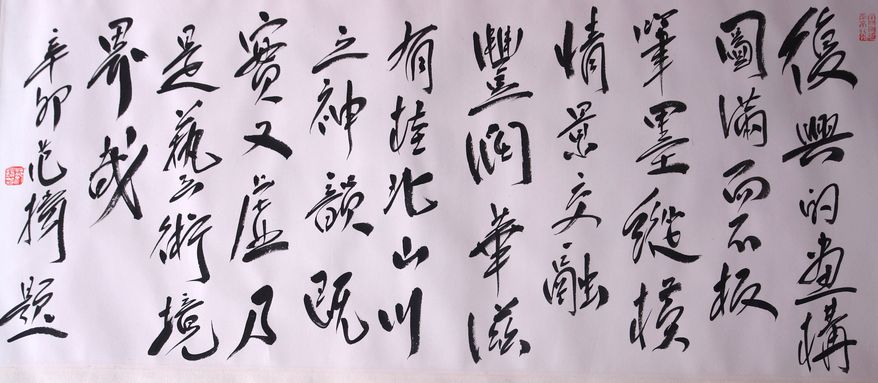 復興的畫構
圖滿而不板
筆墨縱横
情景交融
豐潤華滋
有桂北山川
之神韻既
實又虛乃
是藝術境
界哉
辛卯范題